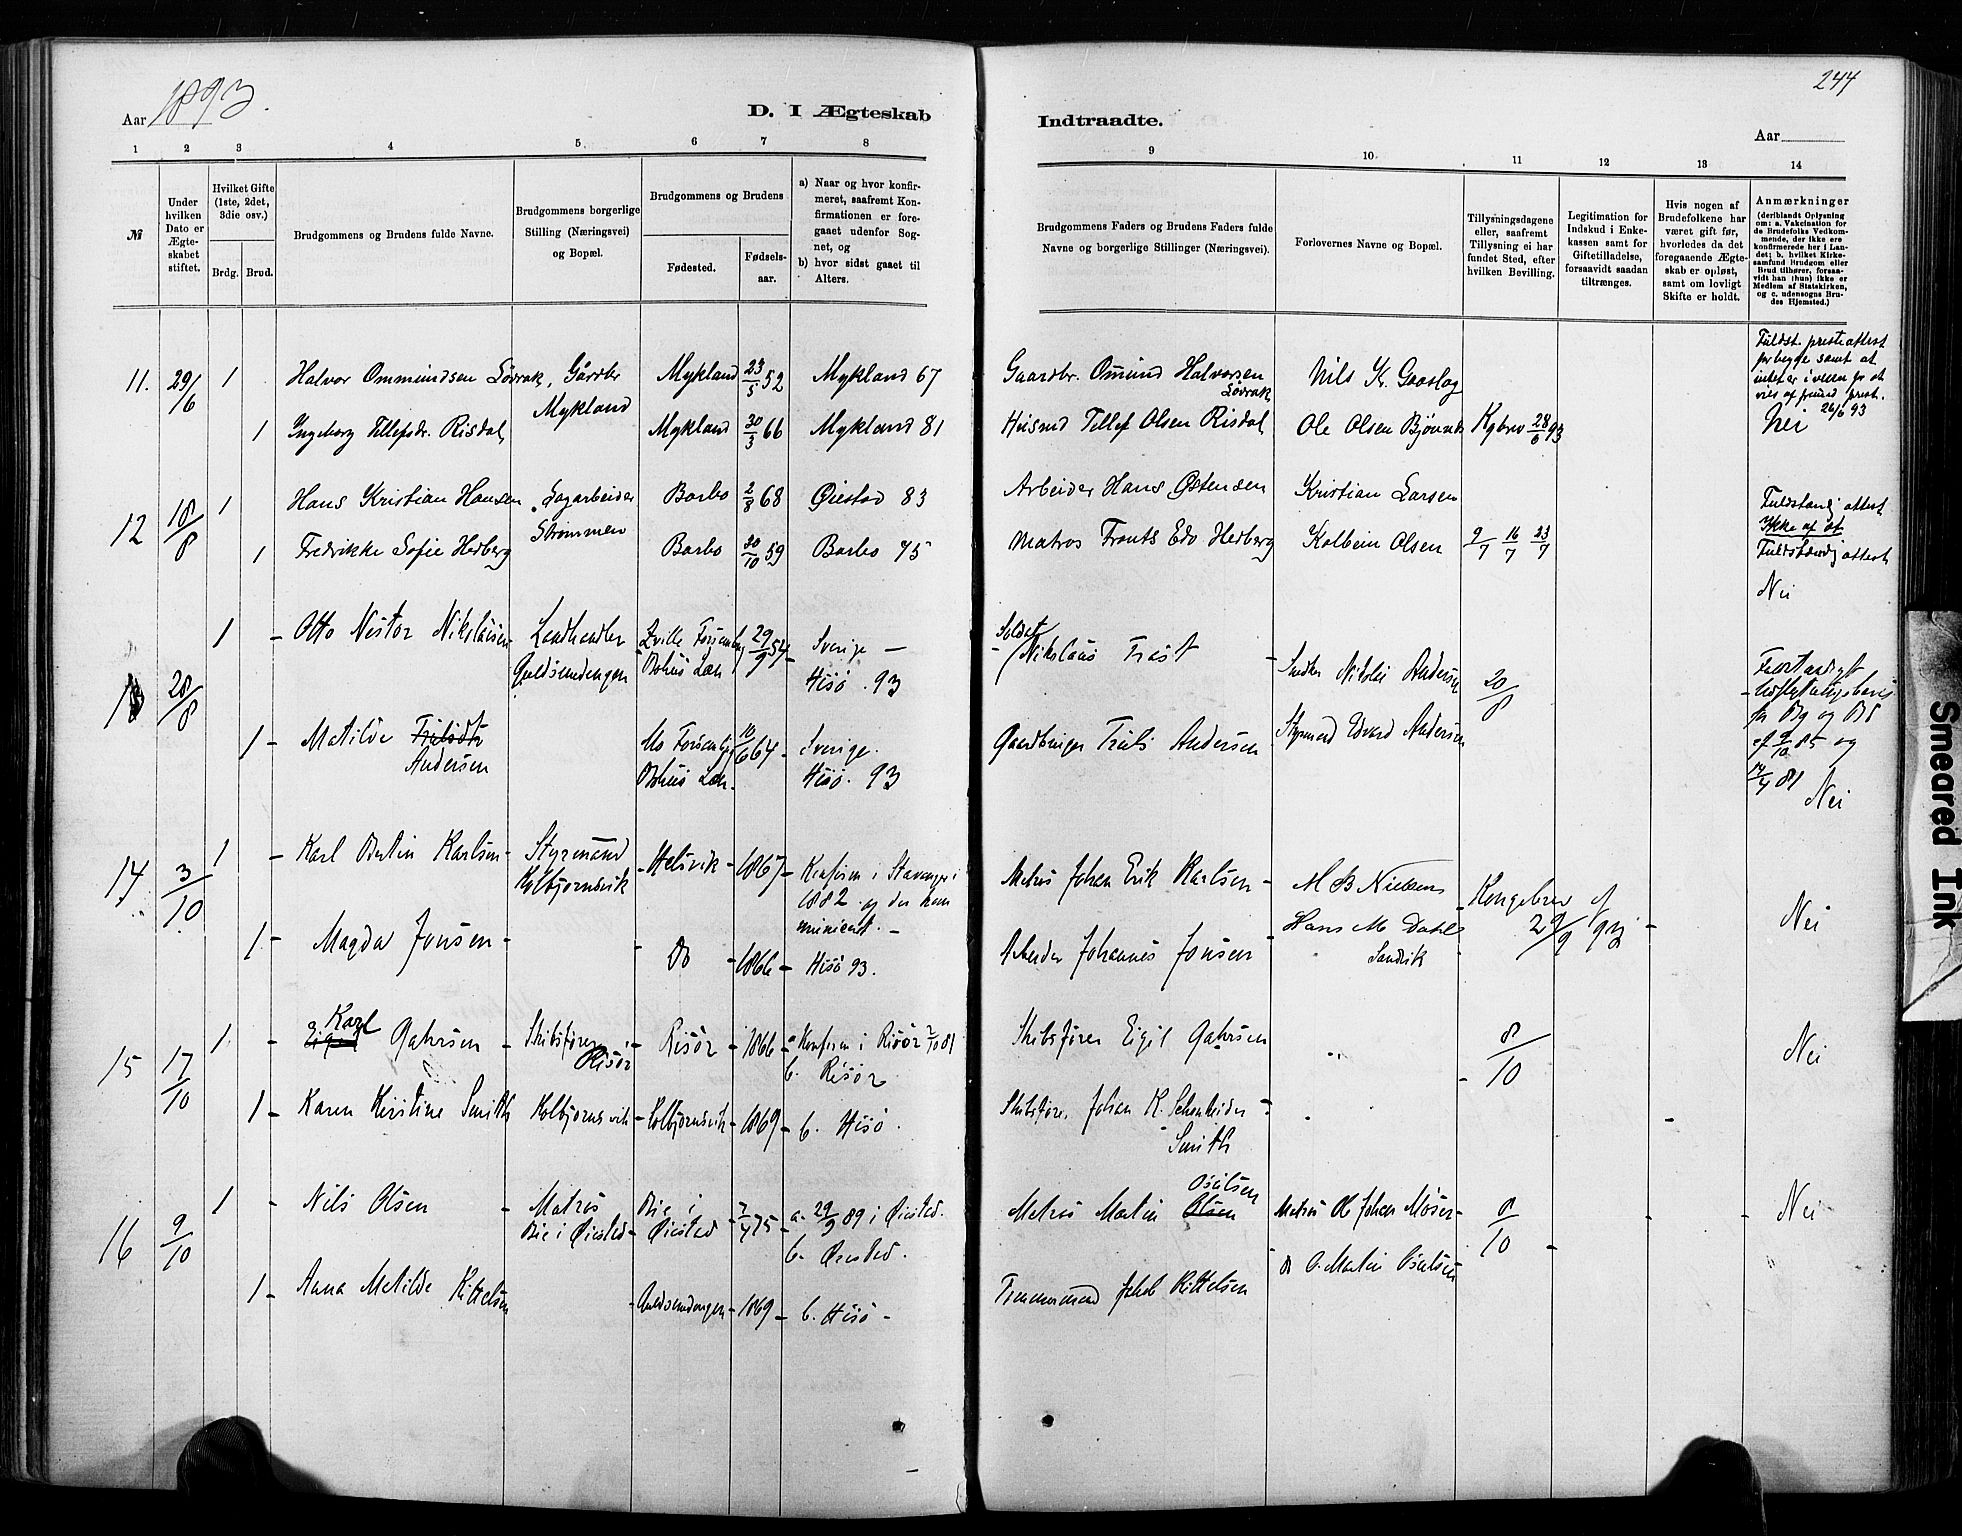 Aar 1893.
D. I Ægteskab
Indtraadte.
244
Aar
1 2 3 4 5 6 7 8
9 10 11 12 13 14
№
Under hvilken Dato er Ægteskabet stiftet.
Hvilket Gifte (1ste, 2det, 3die osv.)
Brdg. Brud.
Brudgommens og Brudens fulde Navne.
Brudgommens borgerlige Stilling (Næringsvei) og Bopæl.
Brudgommens og Brudens
Fødested.
Fødselsaar.
a) Naar og hvor konfirmeret, saafremt Konfirmationen er foregaaet udenfor Sognet, og
b) hvor sidst gaaet til Alters.
Brudgommens Faders og Brudens Faders fulde Navne og borgerlige Stillinger (Næringsvei).
Forlovernes Navne og Bopæl.
Tillysningsdagene eller, saafremt Tillysning ei har fundet Sted, efter hvilken Bevilling.
Legitimation for Indskud i Enkekassen samt for Giftetilladelse, forsaavidt saadan tiltrænges.
Hvis nogen af Brudefolkene har været gift før, hvorledes da det foregaaende Ægteskab er opløst, samt om lovligt Skifte er holdt.
Anmærkninger
(deriblandt Oplysning om: a. Vakcination for de Brudefolks Vedkommende, der ikke ere konfirmerede her i Landet; b. hvilket Kirkesamfund Brudgom eller Brud tilhører, forsaavidt han (hun) ikke er Medlem af Statskirken, og c. udensogns Brudes Hjemsted.)
11. 29/6 1 Halvor Ommundsen Løvrak, Gårdbr Mykland Mykland 23/5 52 Mykland 67
Gaardbr. Omund Halvorsen Løvrak Nils Kr. Gaaslag
Fuldst. presteattest for begge samt at intet er i veien for at vies af fremmed prest. 26/6 93
1 Ingeborg Tellefsdr. Risdal, Mykland 30/3 66 Mykland 81
Husmd Tellef Olsen Risdal Ole Olsen Kgbrev 28/6 93 Nei
12 18/8 1 Hans Kristian Hansen Sagarbeider Strømmen Barbo 2/8 68 Øiestad 83
Arbeider Hans Østensen Kristian Larsen
Fuldstændig attest
1 Fredrikke Sofie Hedberg Barbo 30/10 59 Barbo 75
Matros Frants Edv Hedberg Kolbein Olsen 9/7 16/7 23/7
Fuldstændig attest
Nei
13 28/8 1 - Otto Nestor Nikolaisen - Guldsmedengen - Bohus Læn 29/9 54 - Sverige - Hisö. 93
Soldat Nikolaus Trast - Nikolai Andersen 20/8
1 - Matilde Trulsdtr Andersen Bohus Læn. 10/6 64 - Sverige. Hisö. 93
Gaardbruger Truls Andersen Styrmand Edvard Andersen
for Bg og Bd af 9/10 85 og 14/4 81
Nei
14 3/10 1 - Karl Bertin Karlsen - Styrmand Kolbjørnsvik - Helsvik - 1867 - Konfirm i Stavanger i 1882 og der kommunicent. -
Matros Johan Erik Karlsen - M B Nielsen Kongebrev af 29/9 93 - Nei
1 - Magda Jonsen - - Do - 1866 - Hisö 93.
Arbeider Johannes Jonsen Hans M. Dahl Sandvik
15 17/10 1 - Karl Eigil Gahrsen - Skibsfører Risör - Risör - 1866 - a Konfirm i Risör 2/10 81 b. Risör
Skibsfører Eigil Gahrsen 8/10 Nei
1 - Karen Kirstine Smith Kolbjørnsvik - Kolbjørnsvik - 1869 - b. Hisö.
Skibsføre. Johan K. Schanheider - Smith
16 9/10 1 - Nils Olsen - Matros Bie i Øiestad - Bie i Øiestad - 7/4 75 - a. 29/9 89 i Øiestad. b. Øiestad.
Matros Martin Olsen Osulsen Matros Ole Johan Moser - 8/10 - Nei
1 - Anna Matilde Kittelsen - Guldsmedengen - 1869 - b. Hisö -
Tømmermand Jakob Kittelsen - Do O. Martin Osulsen
Smeared Ink